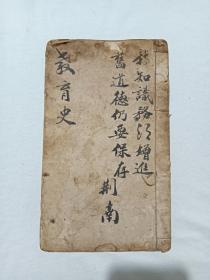 新知識務須增進
舊道德仍要保存
荆南
教育史